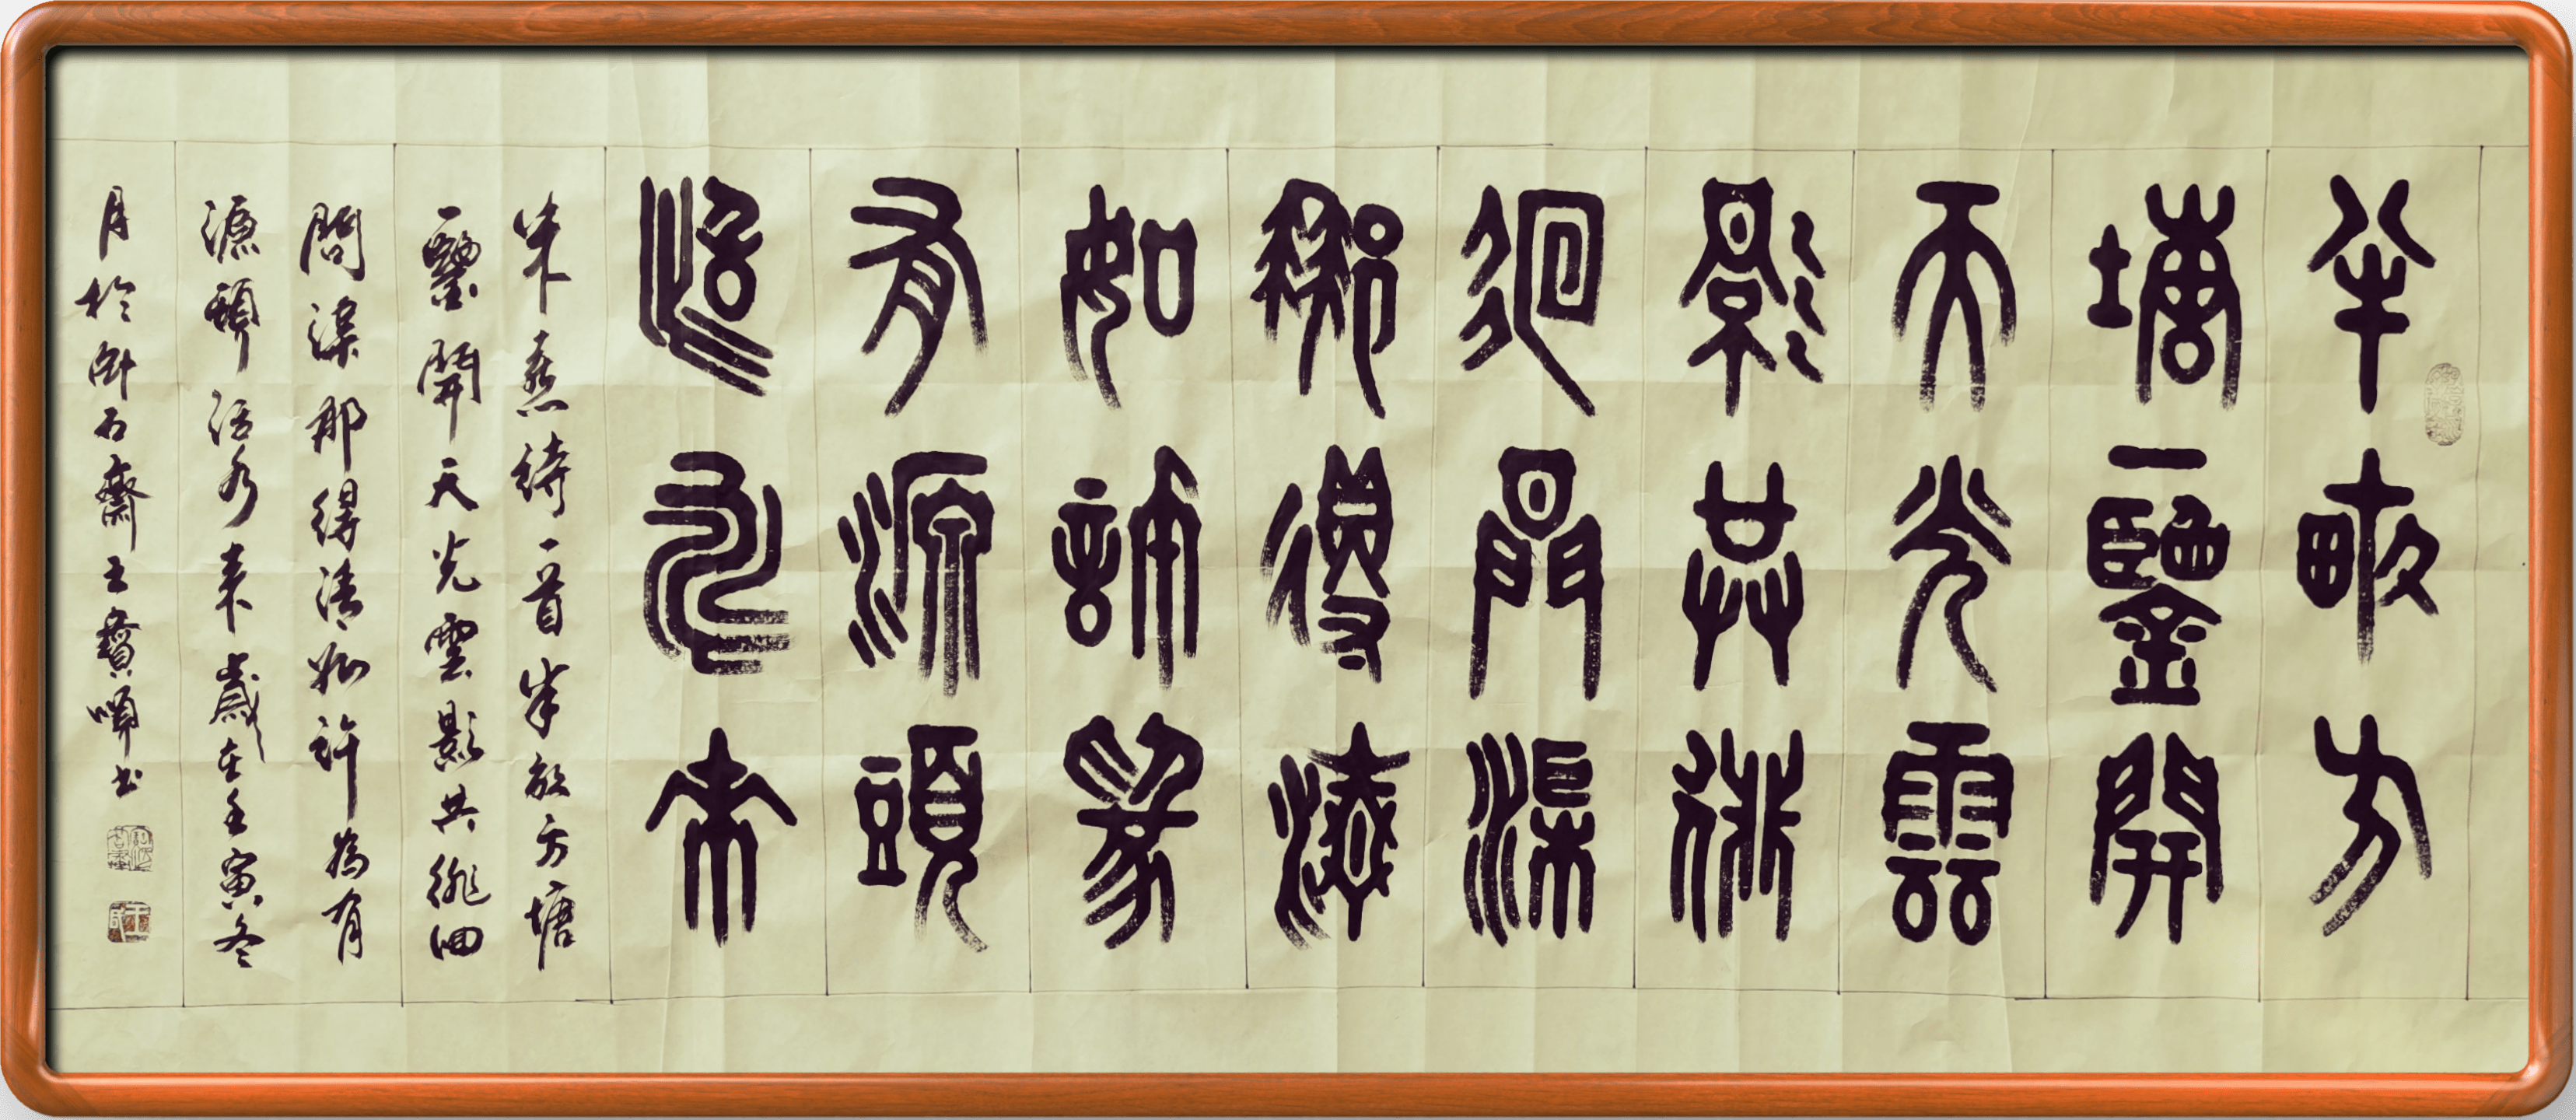 半畝方
塘一鑒開
天光雲
影共徘
徊問渠
那得清
如許為
有源頭
活水來
朱熹詩一首半畝方塘
一鑒開天光雲影共徘徊
問渠那得清如許為有
源頭活水來歲在壬寅冬
月於卧石齋王寶
書